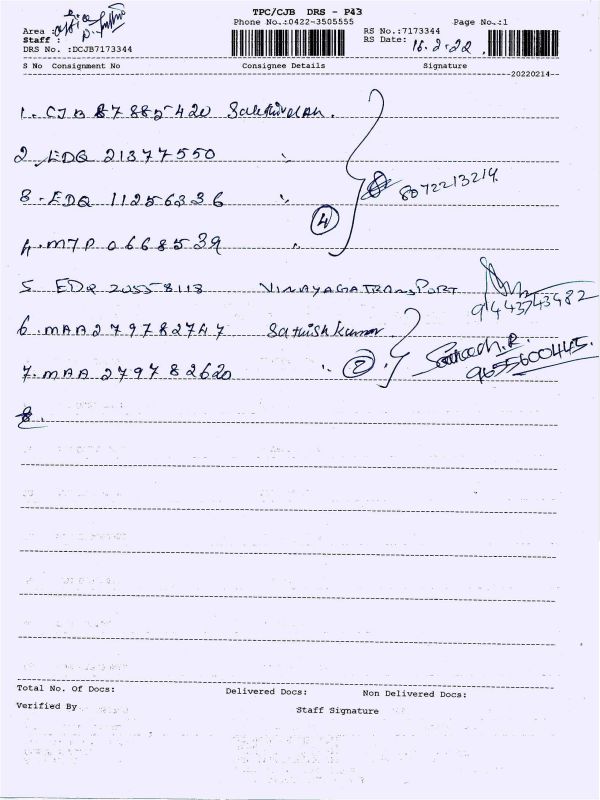 TPC/CJB DRS - P43
Phone No.:0422-3505555
Page No.:1
Area :
Staff :
DRS No. :DCJB7173344
RS No.:7173344
RS Date: 16-2-22
S No Consignment No Consignee Details Signature
20220214
1. CJB 87885420
2 EDQ 21377550 "
3 - EDQ 11256336 "
4. MTP 0668539 "
4
8072213214
5 EDQ 20558118 VINAYAGA TRANSPORT
9443743482
6. MAA 279782747 Sathish Kumar
7. MAA 279782620 " 2
9655600445
8.
Total No. Of Docs: Delivered Docs: Non Delivered Docs:
Verified By Staff Signature